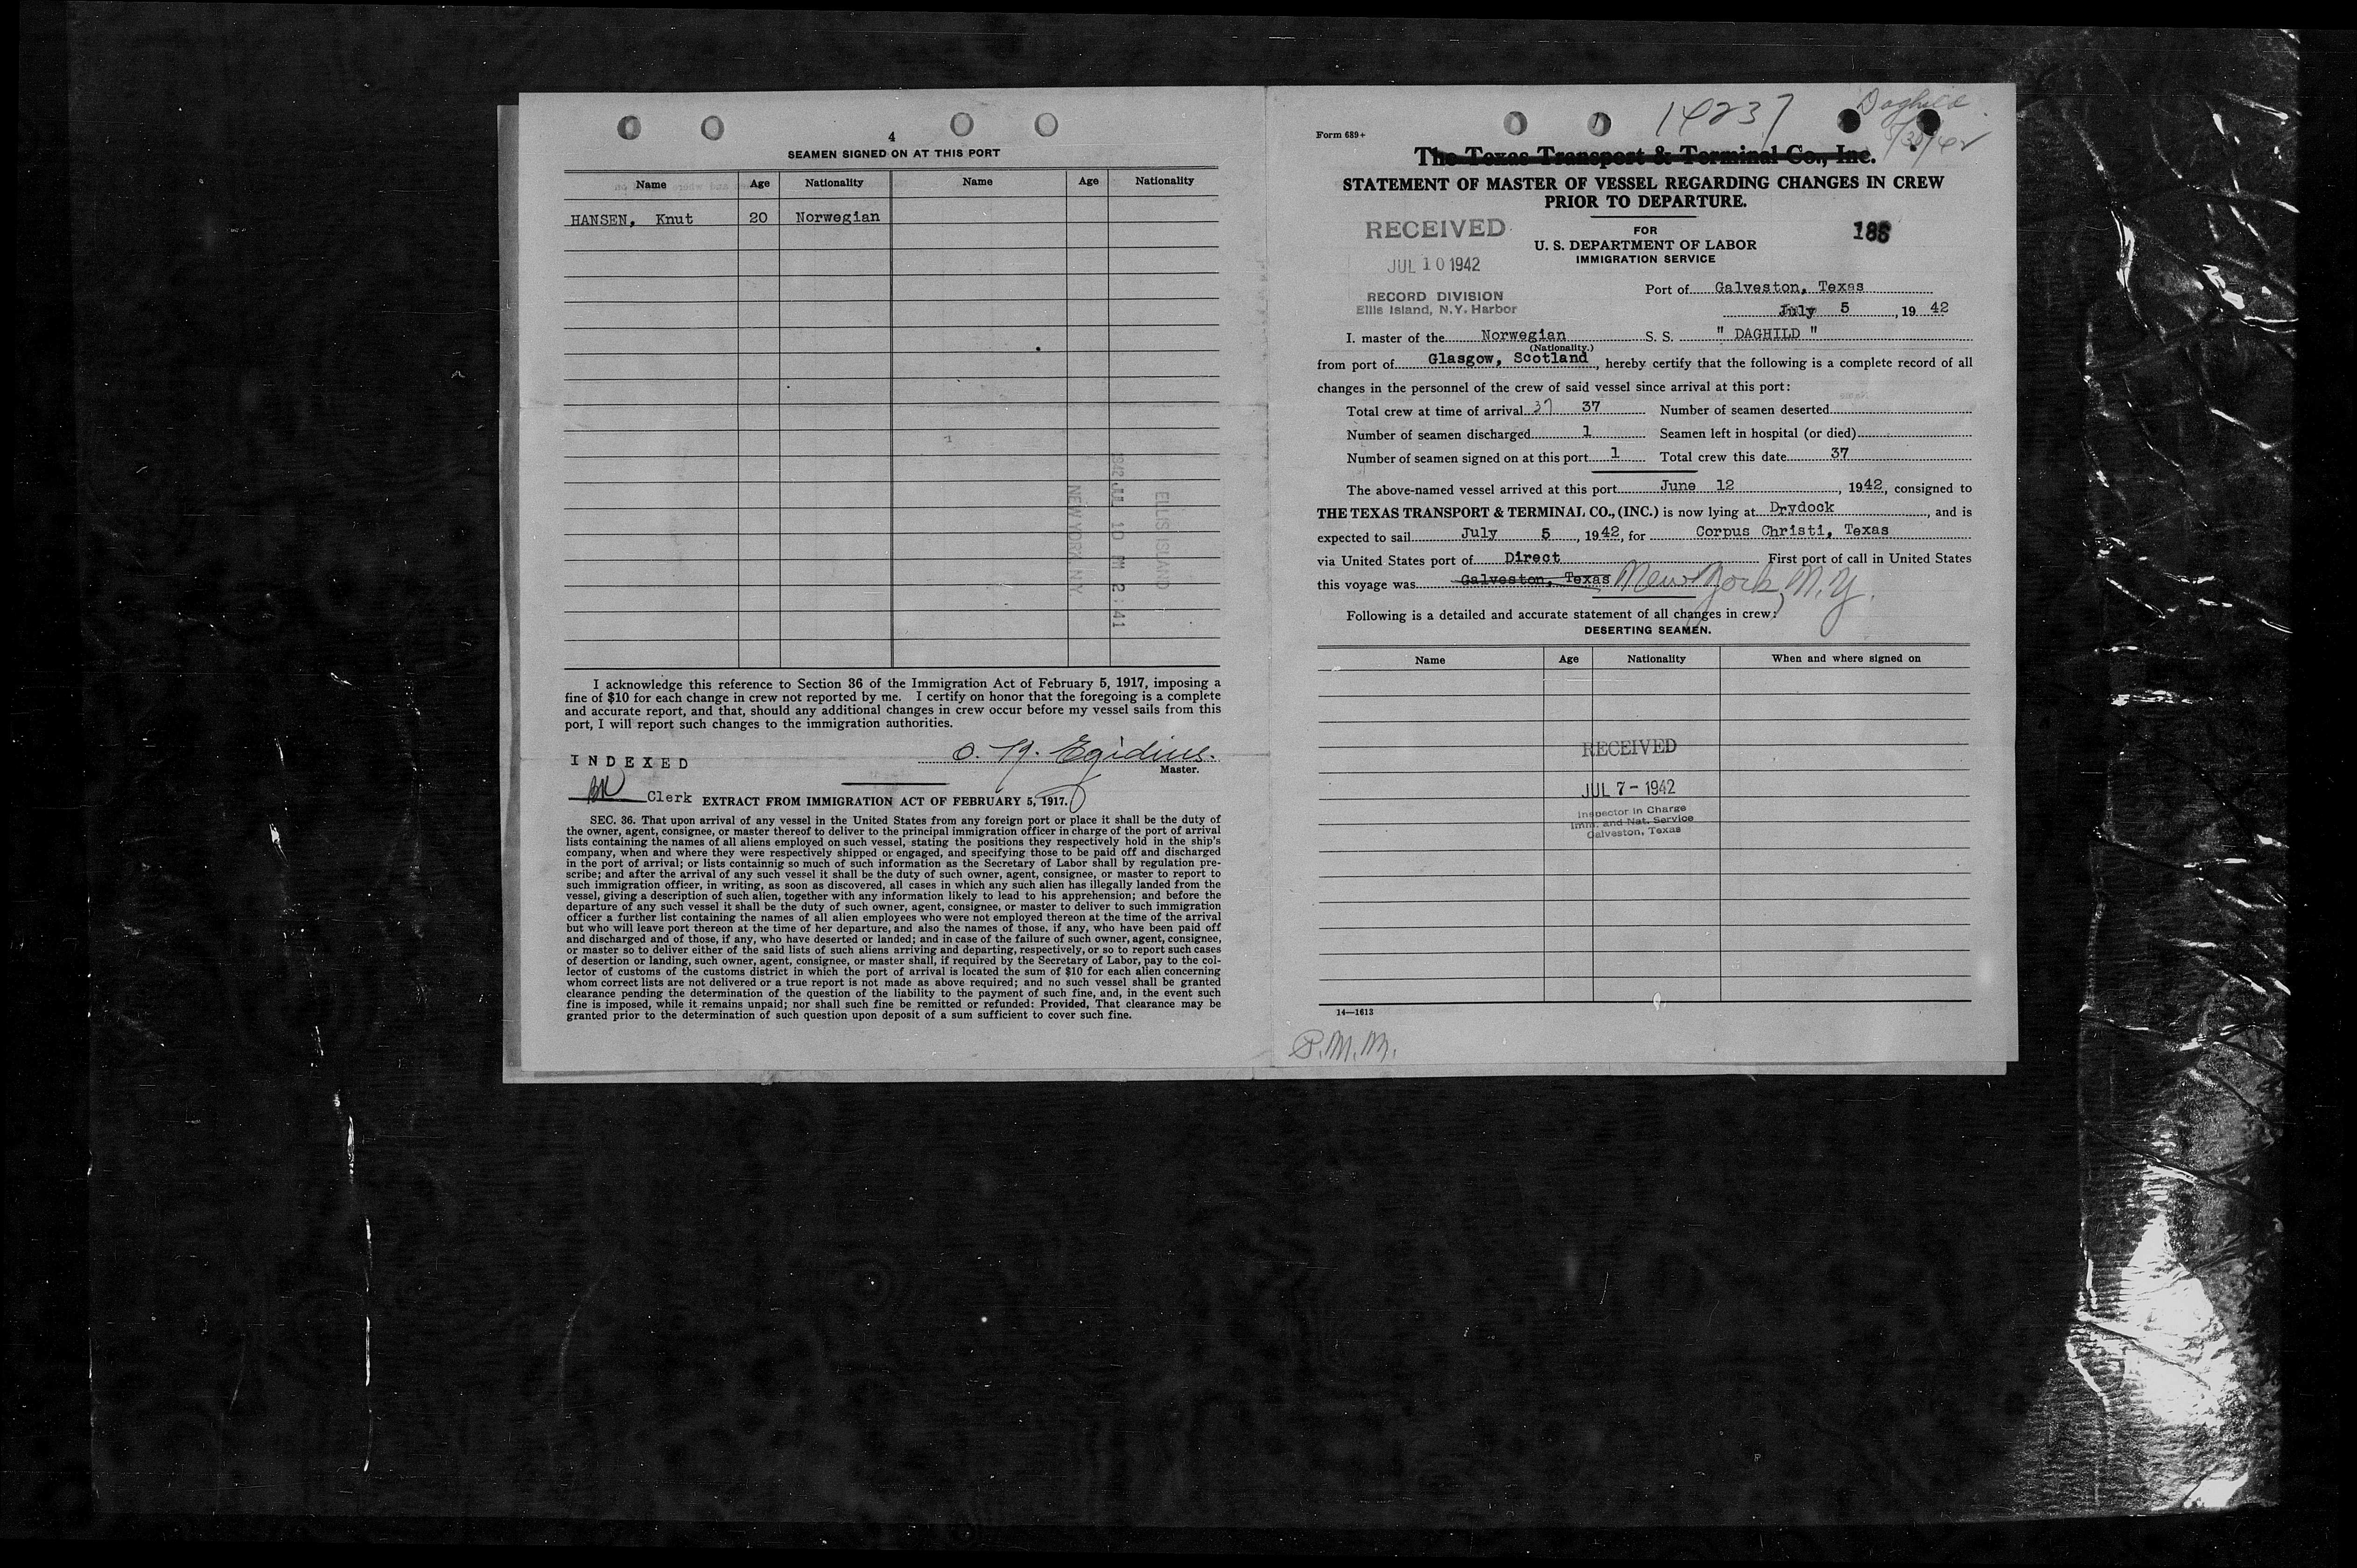 4
SEAMEN SIGNED ON AT THIS PORT
Name Age Nationality Name Age Nationality
HANSEN, Knut 20 Norwegian
ELLIS ISLAND
1942 JUL 10 PM 2:41
NEW YORK, N.Y.
I acknowledge this reference to Section 36 of the Immigration Act of February 5, 1917, imposing a
fine of $10 for each change in crew not reported by me. I certify on honor that the foregoing is a complete
and accurate report, and that, should any additional changes in crew occur before my vessel sails from this
port, I will report such changes to the immigration authorities.
Egidius.
INDEXED
Master.
Clerk
EXTRACT FROM IMMIGRATION ACT OF FEBRUARY 5, 1917.
SEC. 36. That upon arrival of any vessel in the United States from any foreign port or place it shall be the duty of
the owner, agent, consignee, or master thereof to deliver to the principal immigration officer in charge of the port of arrival
lists containing the names of all aliens employed on such vessel, stating the positions they respectively hold in the ship's
company, when and where they were respectively shipped or engaged, and specifying those to be paid off and discharged
in the port of arrival; or lists containnig so much of such information as the Secretary of Labor shall by regulation pre-
scribe; and after the arrival of any such vessel it shall be the duty of such owner, agent, consignee, or master to report to
such immigration officer, in writing, as soon as discovered, all cases in which any such alien has illegally landed from the
vessel, giving a description of such alien, together with any information likely to lead to his apprehension; and before the
departure of any such vessel it shall be the duty of such owner, agent, consignee, or master to deliver to such immigration
officer a further list containing the names of all alien employees who were not employed thereon at the time of the arrival
but who will leave port thereon at the time of her departure, and also the names of those, if any, who have been paid off
and discharged and of those, if any, who have deserted or landed; and in case of the failure of such owner, agent, consignee,
or master so to deliver either of the said lists of such aliens arriving and departing, respectively, or so to report such cases
of desertion or landing, such owner, agent, consignee, or master shall, if required by the Secretary of Labor, pay to the col-
lector of customs of the customs district in which the port of arrival is located the sum of $10 for each alien concerning
whom correct lists are not delivered or a true report is not made as above required; and no such vessel shall be granted
clearance pending the determination of the question of the liability to the payment of such fine, and, in the event such
fine is imposed, while it remains unpaid; nor shall such fine be remitted or refunded: Provided, That clearance may be
granted prior to the determination of such question upon deposit of a sum sufficient to cover such fine.
14237
Daghild
5/30/42
Form 689+
The Texas Transport & Terminal Co., Inc.
STATEMENT OF MASTER OF VESSEL REGARDING CHANGES IN CREW
PRIOR TO DEPARTURE.
RECEIVED
JUL 10 1942
RECORD DIVISION
Ellis Island, N.Y. Harbor
FOR
U. S. DEPARTMENT OF LABOR
IMMIGRATION SERVICE
Port of Galveston, Texas
July 5, 19 42
I. master of the Norwegian S. S. " DAGHILD "
(Nationality.)
from port of Glasgow, Scotland, hereby certify that the following is a complete record of all
changes in the personnel of the crew of said vessel since arrival at this port:
Total crew at time of arrival 37 37 Number of seamen deserted
Number of seamen discharged 1 Seamen left in hospital (or died)
Number of seamen signed on at this port 1 Total crew this date 37
The above-named vessel arrived at this port June 12, 1942, consigned to
THE TEXAS TRANSPORT & TERMINAL CO., (INC.) is now lying at Drydock, and is
expected to sail July 5, 1942, for Corpus Christi, Texas
via United States port of Direct First port of call in United States
this voyage was Galveston, Texas New York, N.Y.
Following is a detailed and accurate statement of all changes in crew:
DESERTING SEAMEN.
Name Age Nationality When and where signed on
RECEIVED
JUL 7 - 1942
Inspector in Charge
Imm. and Nat. Service
Galveston, Texas
14—1613
P.M.M.